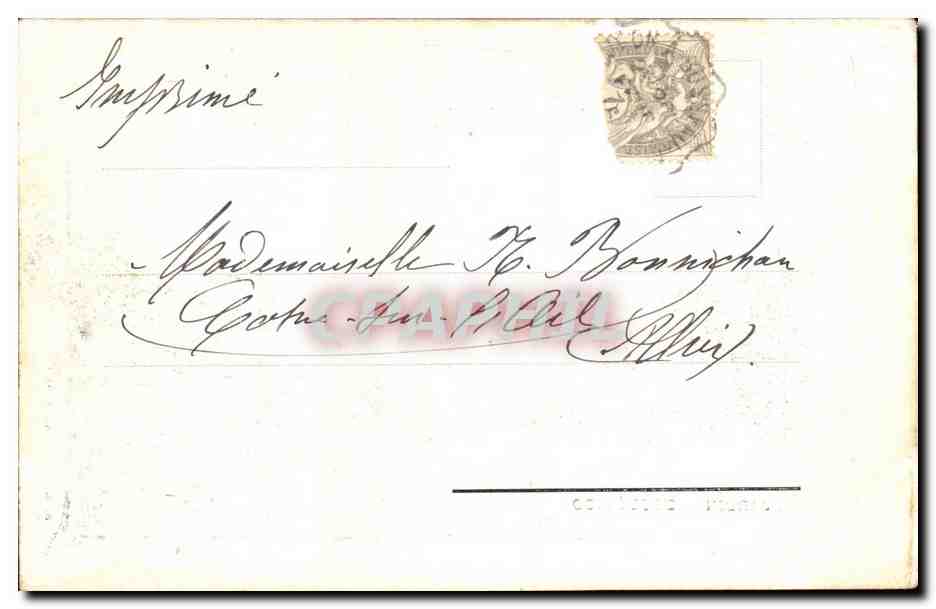 Imprimé
Mademoiselle N. Bonnichon
Cosne-sur-l'Œil (Allier).
CPAPHIL